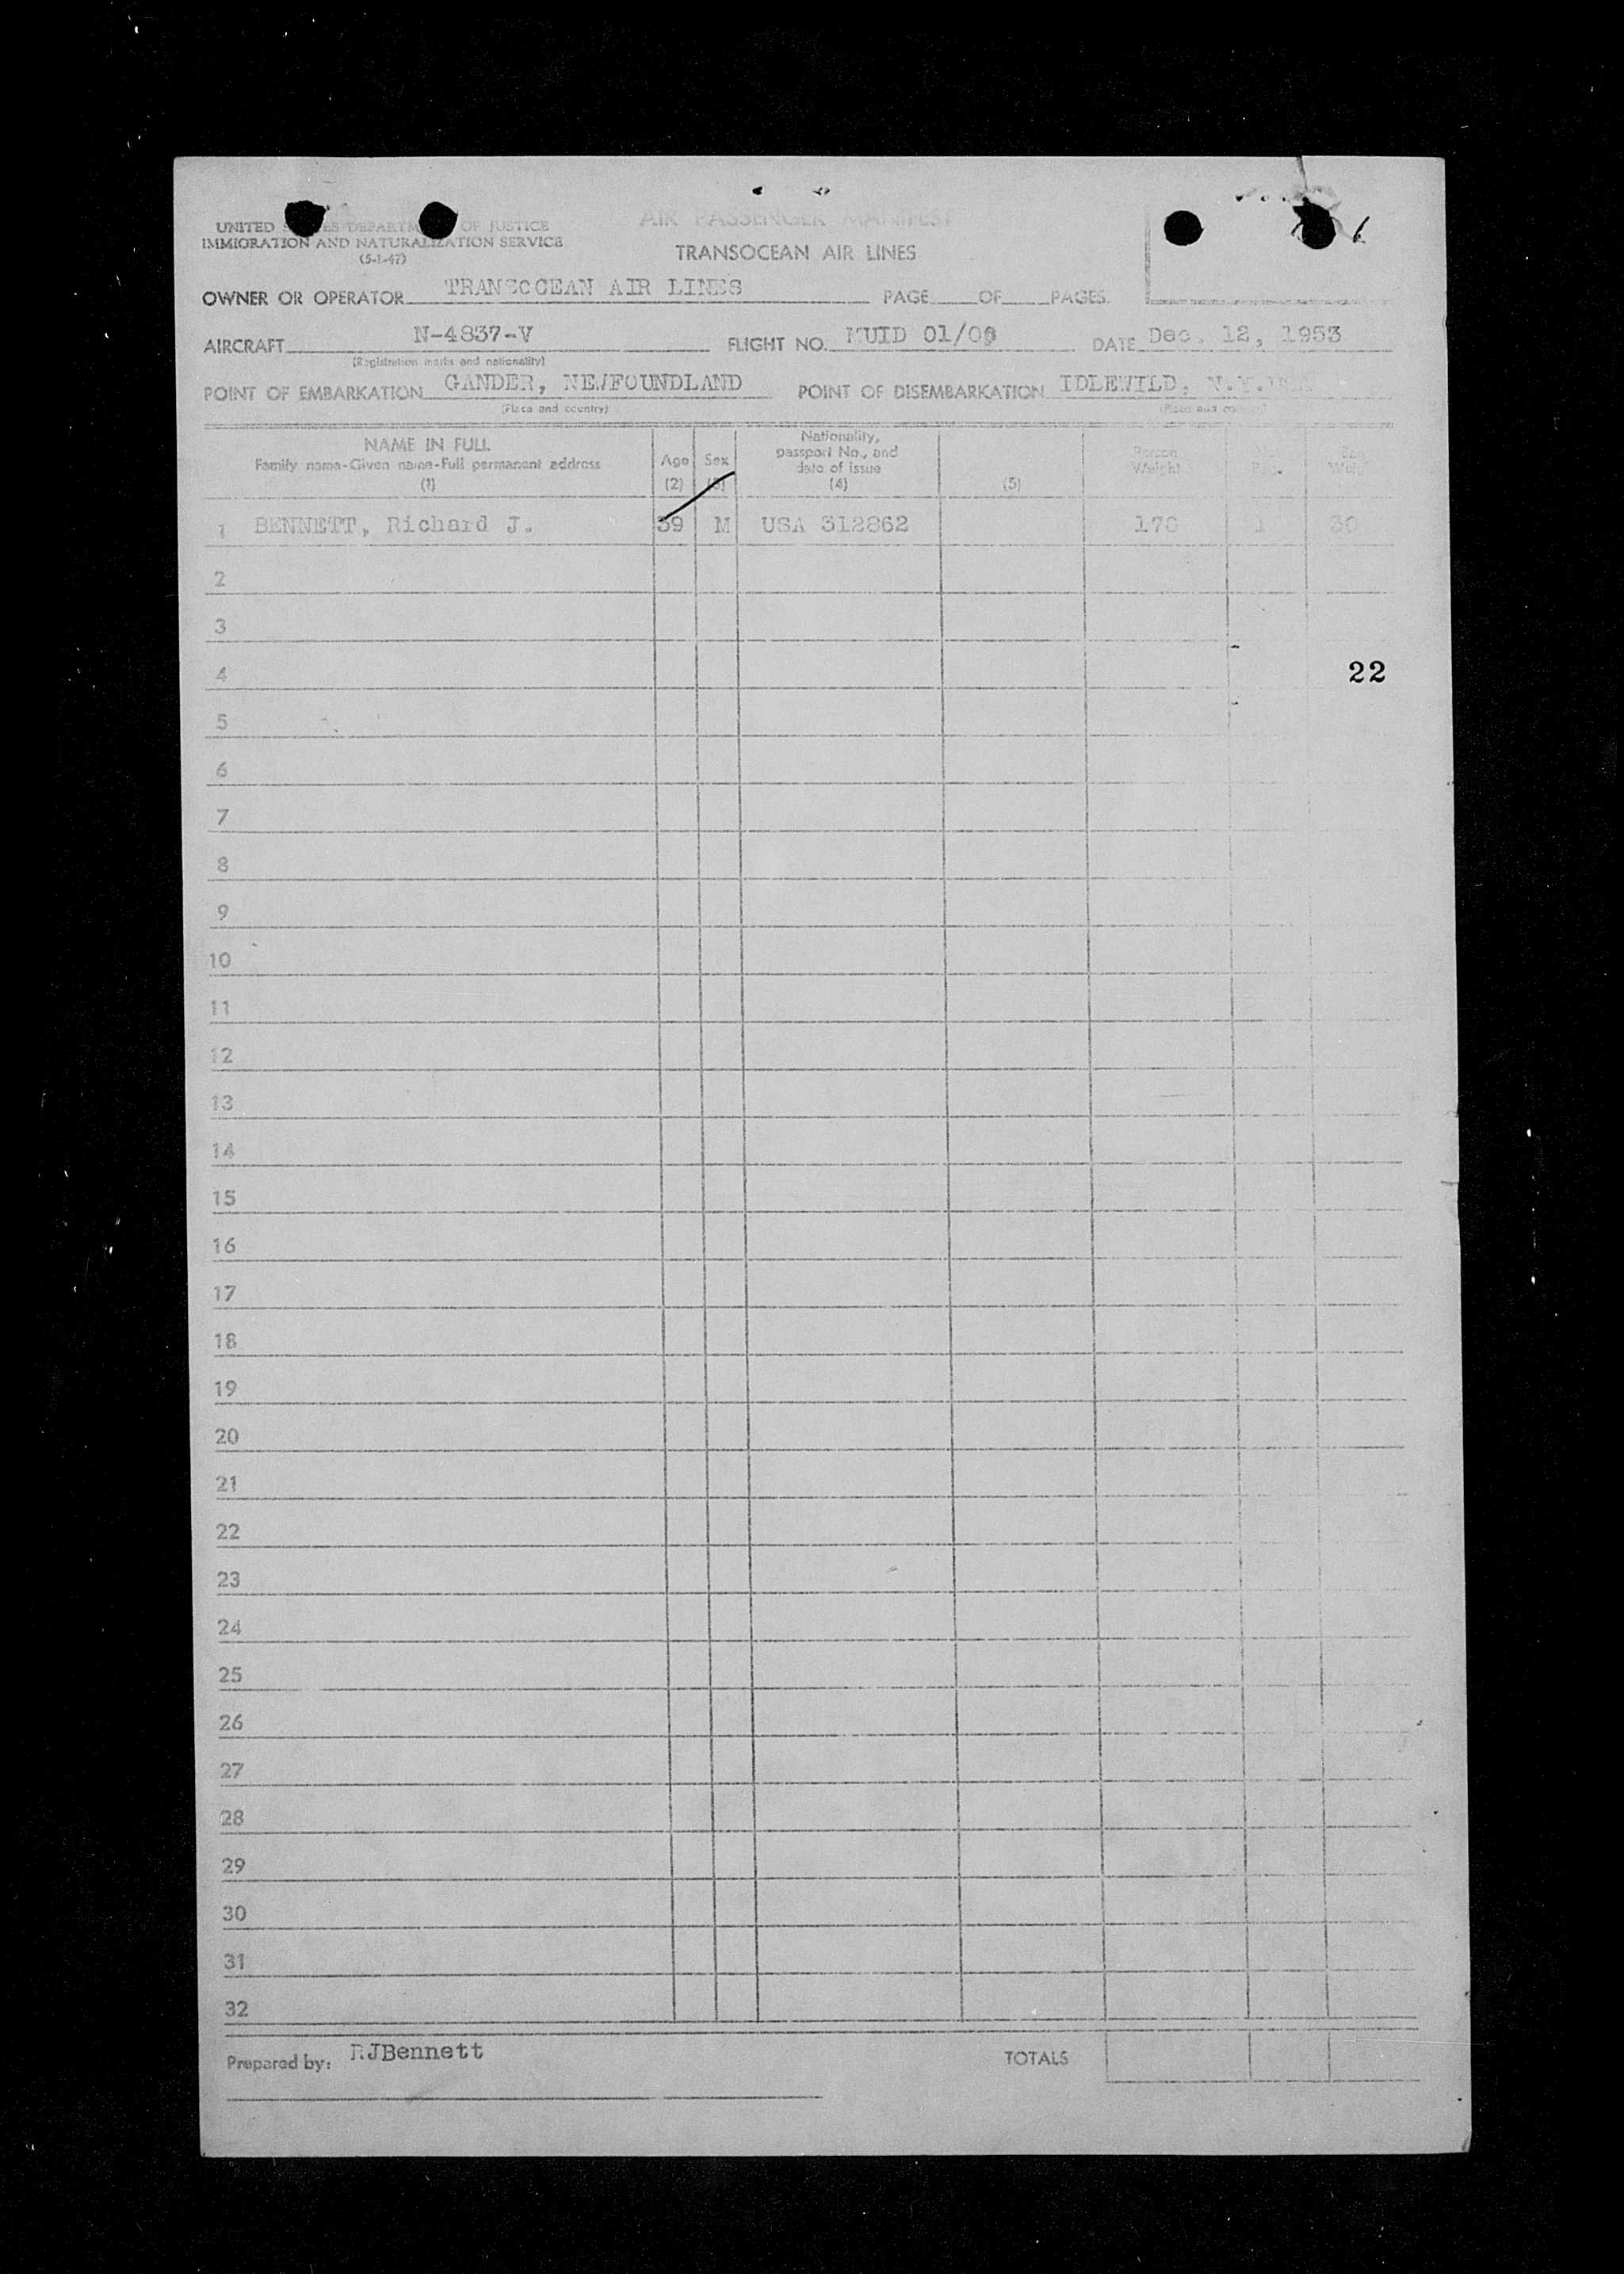 AIR PASSENGER MANIFEST
UNITED STATES DEPARTMENT OF JUSTICE
IMMIGRATION AND NATURALIZATION SERVICE
(5-1-47)
TRANSOCEAN AIR LINES
OWNER OR OPERATOR TRANSOCEAN AIR LINES PAGE OF PAGES
AIRCRAFT N-4837-V FLIGHT NO. MUID DATE Dec. 12, 1953
(Registration marks and nationality)
POINT OF EMBARKATION GANDER, NEWFOUNDLAND POINT OF DISEMBARKATION IDLEWILD, N.Y.
(Place and country) (Place and country)
NAME IN FULL
Family name-Given name-Full permanent address
(1)
Age
(2)
Sex
(3)
Nationality,
passport No., and
date of issue
(4)
(5)
Person
Weight
1 BENNETT, Richard J. 39 M USA 312862 1 30
2
3
4
22
5
6
7
8
9
10
11
12
13
14
15
16
17
18
19
20
21
22
23
24
25
26
27
28
29
30
31
32
Prepared by: RJBennett TOTALS